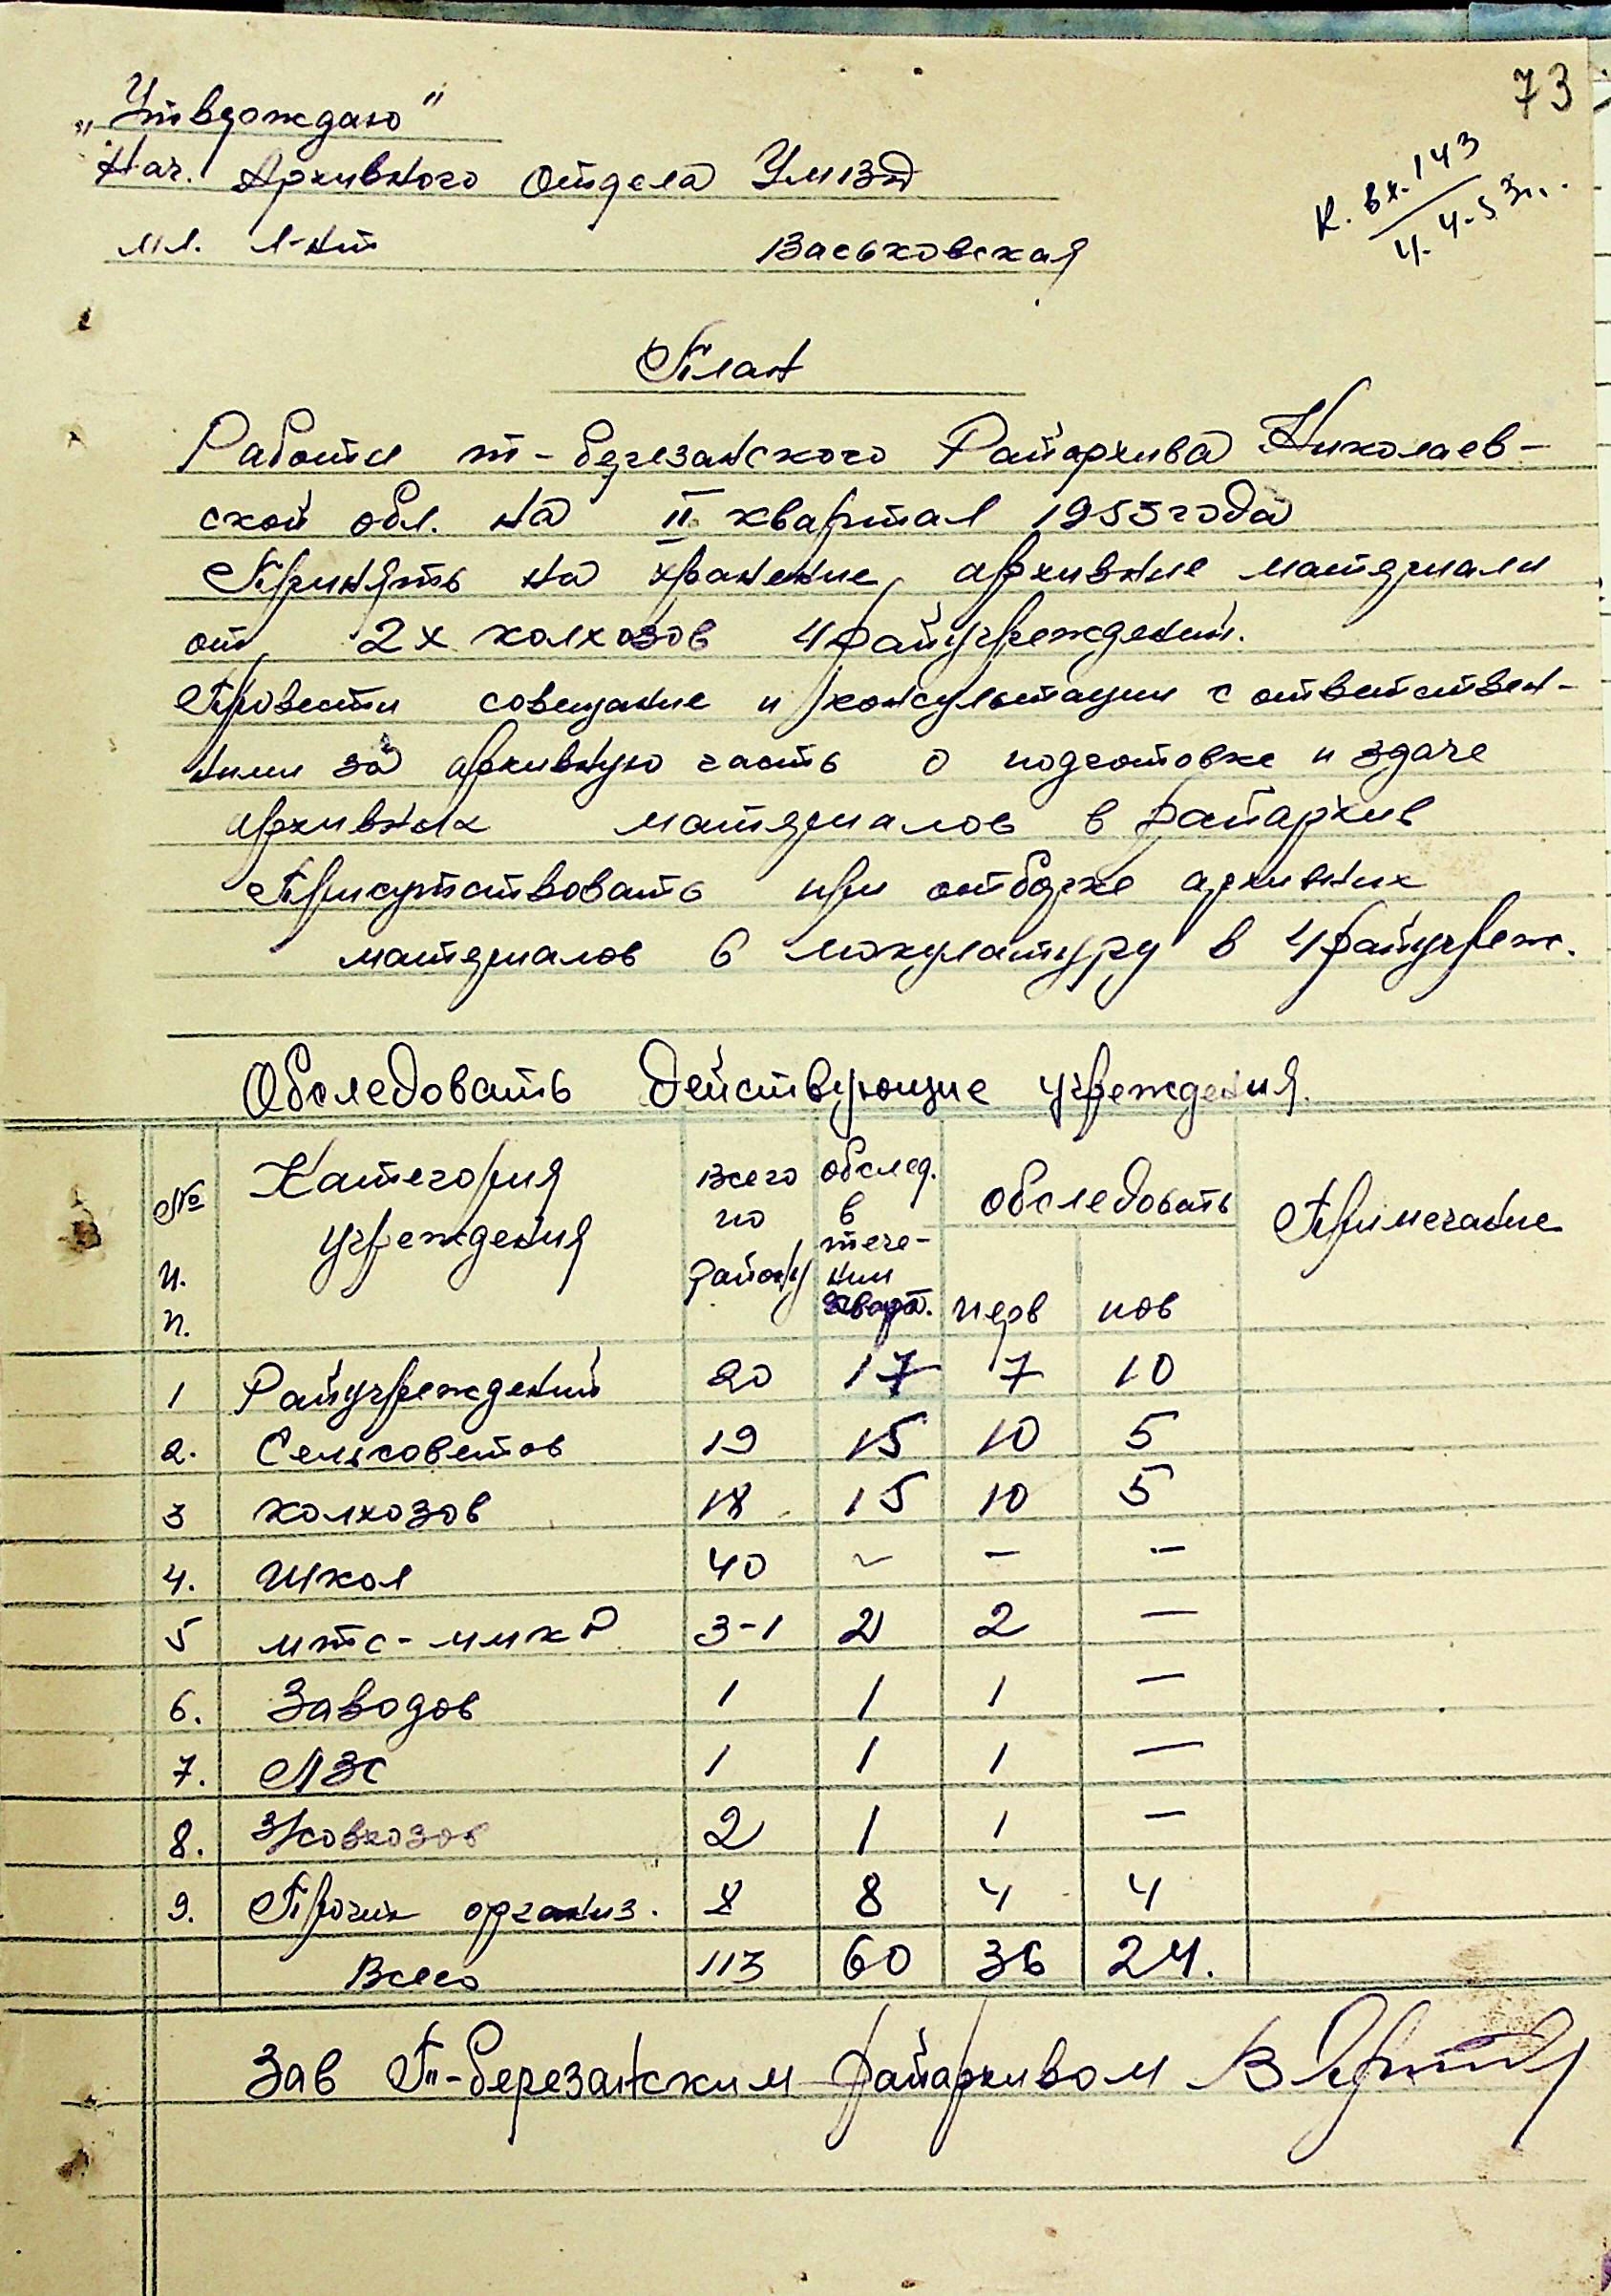 73
„Утверждаю"
Нач. Архивного отдела УМВД
мл. л-нт Васьковская
К. вх. 143
4. 4. 53 г.
План
Работи т-березанского Райархива Николаев-
ской обл. на II квартал 1953 года
Принять на хранение архивние материали
от 2х колхозов 4 райучреждений.
Провести совещание и консультации с ответствен-
ними за архивную часть о подготовке и здаче
архивных материалов в райархив
Присутствовать при отборке архивних
материалов в мокулатуру в 4 райучреж.
Обследовать действующие учреждения.
№ п. п. Категория учреждения Всего по району обслед. в тече- нии кварт. обследовать Примечание
перв пов
1 Райучреждений 20 17 7 10
2. Сельсоветов 19 15 10 5
3 колхозов 18 15 10 5
4. Школ 40 – – –
5 мтс - 3-1 2 2 –
6. Заводов 1 1 1 –
7. ЛЗС 1 1 1 –
8. Совхозов 2 1 1 –
9. Прочих организ. 8 8 4 4
Всего 113 60 36 24.
Зав Т-березанским райархивом В